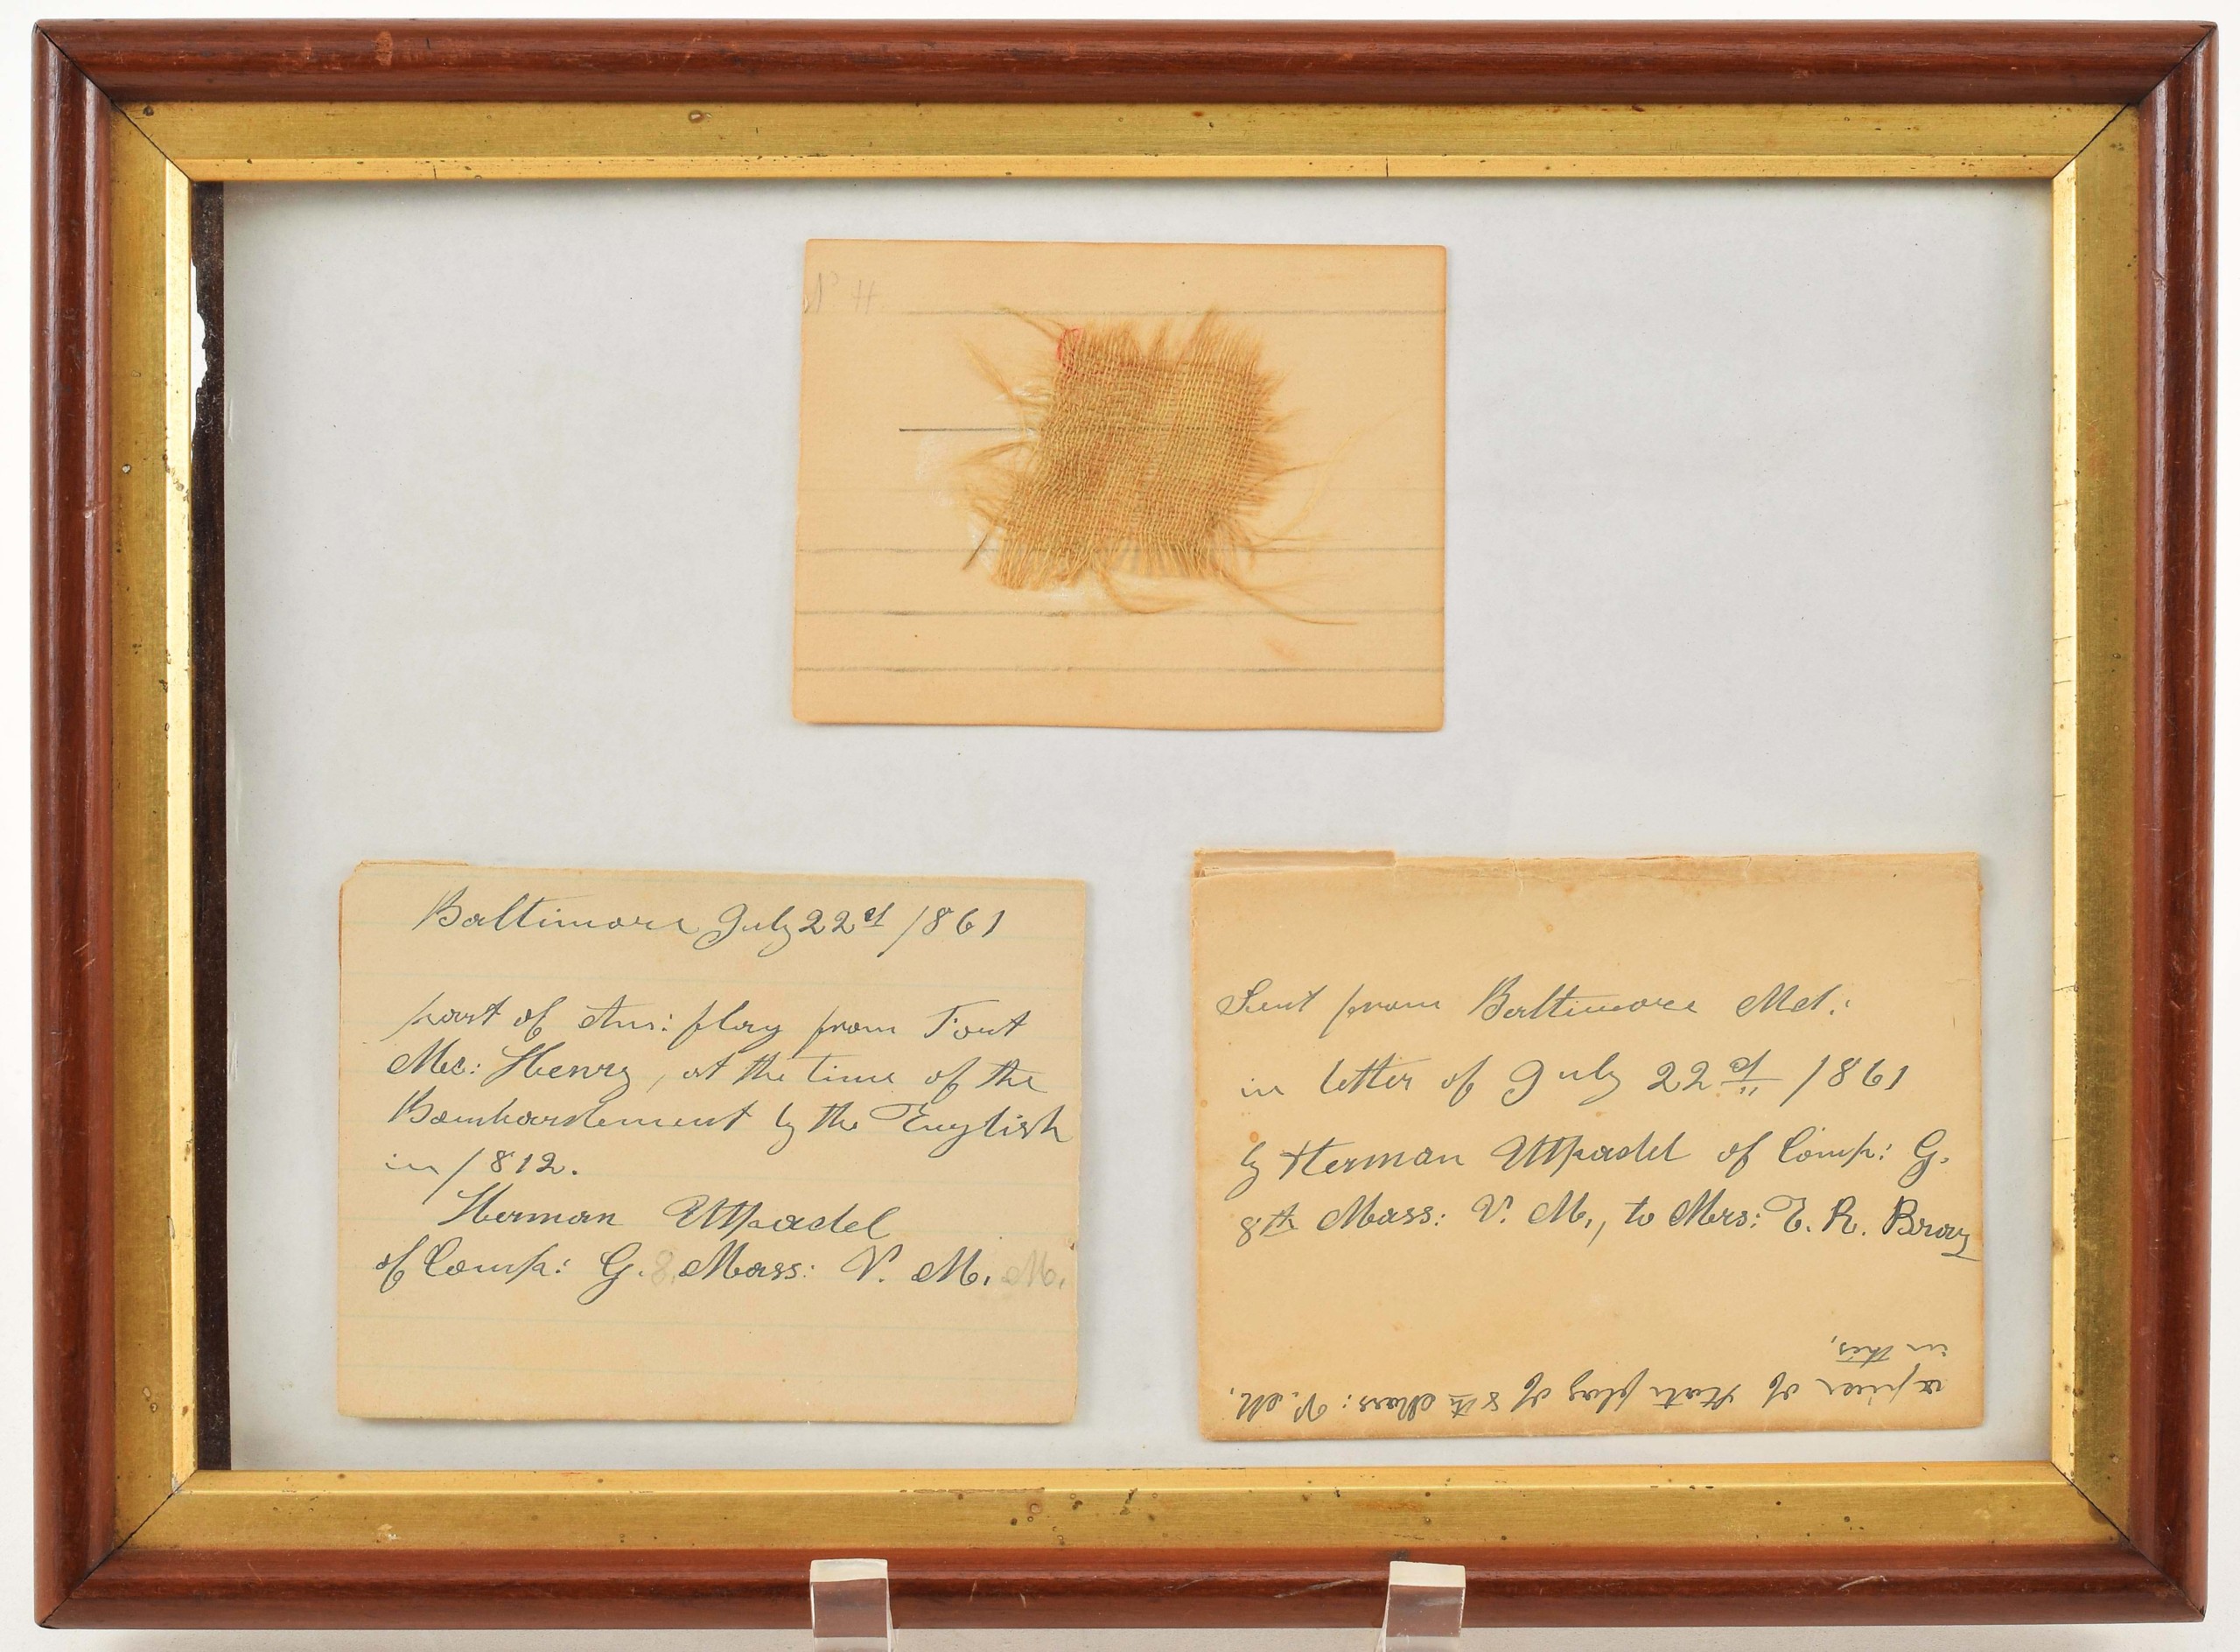 Baltimore July 22d /861
part of Am: flag from Fort
Mc: Henry, at the time of the
Bombardement by the English
in 1812.
Herman Uttpadel
of Comp: G. 8. Mass: V. M. M.
Sent from Baltimore Md:
in letter of July 22d /861
by Herman Uttpadel of Comp: G.
8th Mass: V. M., to Mrs: E. R. Bray
a piece of State flag of 8th Mass: V. M.
in this,